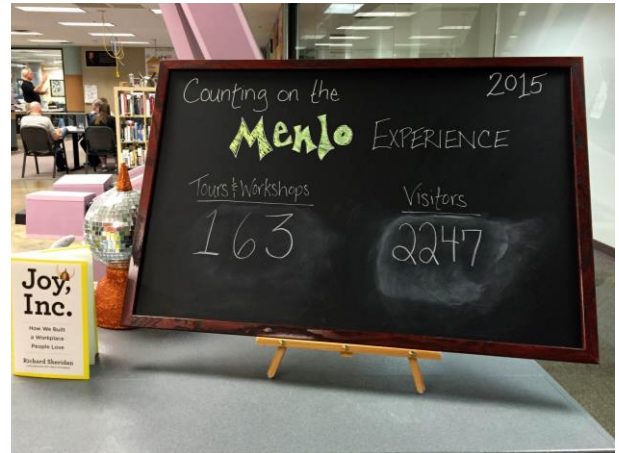 Counting on the
2015
Menlo EXPERIENCE
Tours & Workshops
Visitors
163
2247
Joy,
Inc.
How We Built
a Workplace
People Love
Richard Sheridan